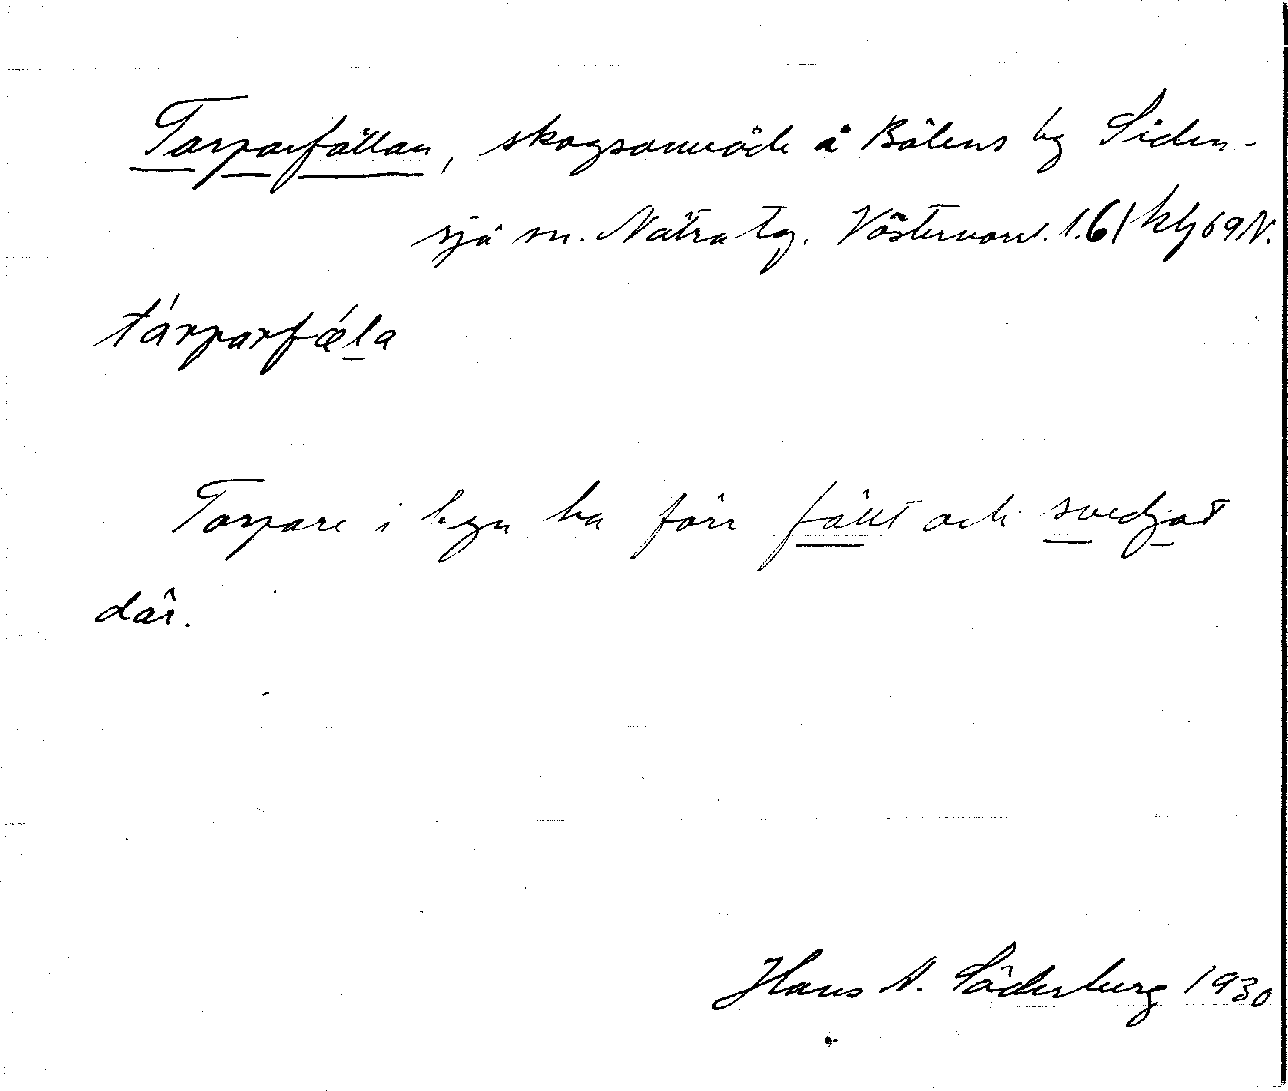 Tarparfällan, skogsområde å Bölens by Siden-
sjö sn. Nätra tg. Västernorrl. l. 61 hlg 69 N.
tárparfǽla
Tarpare i byn ha förr fällt och svedjat
där.
Hans N. Söderberg 1930